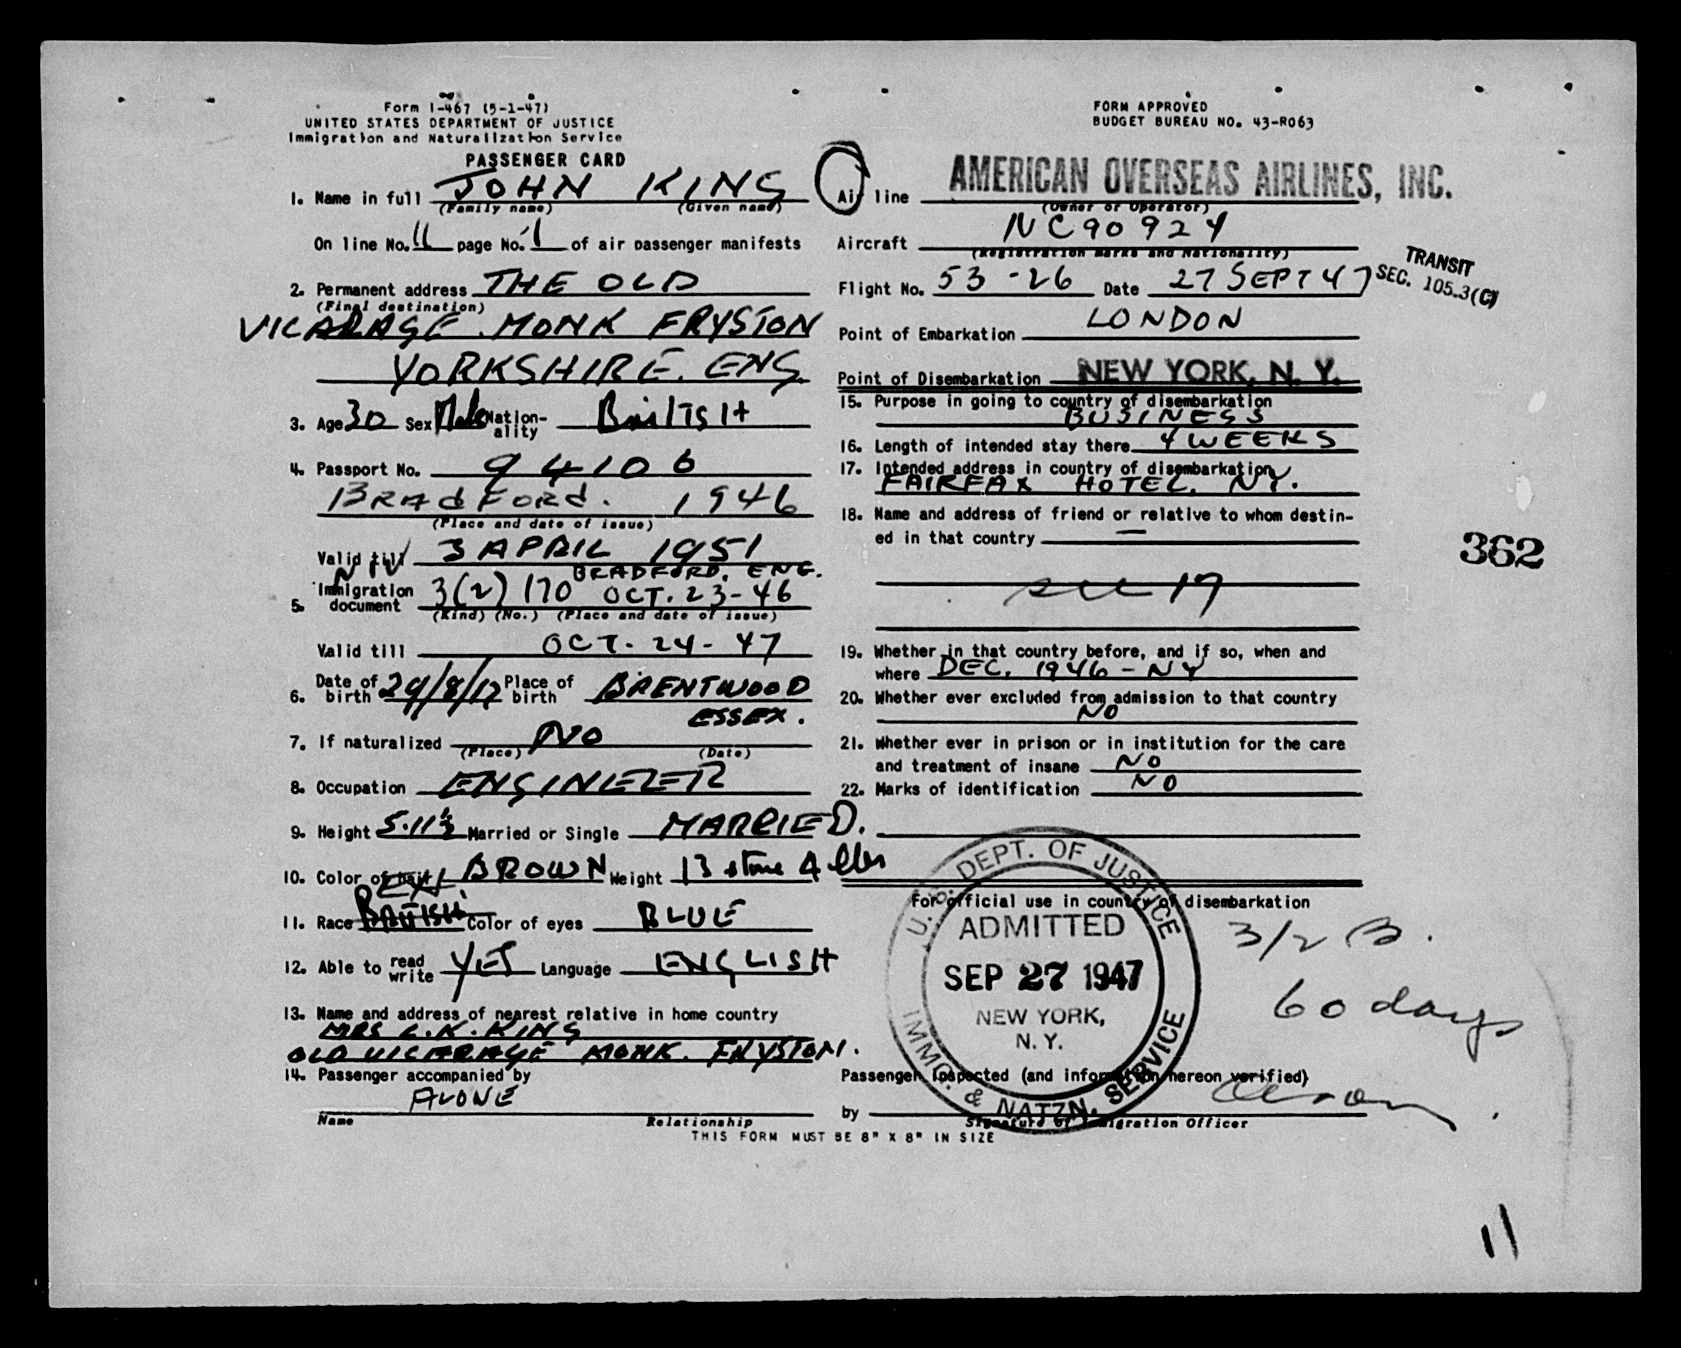 Form I-467 (5-1-47)
UNITED STATES DEPARTMENT OF JUSTICE
Immigration and Naturalization Service
PASSENGER CARD
1. Name in full JOHN KING
(Family name) (Given name)
On line No. 11 page No. 1 of air passenger manifests
2. Permanent address THE OLD
(Final destination)
VICARAGE. MONK FRYSTON
YORKSHIRE. ENG.
3. Age 30 Sex Male Nation-ality British
4. Passport No. 94106
BRADFORD. 1946
(Place and date of issue)
Valid till 3 APRIL 1951
NIV BRADFORD, ENG.
5. Immigration document 3(2) 170 OCT. 23-46
(Kind) (No.) (Place and date of issue)
Valid till OCT. 24-47
6. Date of birth 29/8/17 Place of birth BRENTWOOD
ESSEX.
7. If naturalized NO
(Place) (Date)
8. Occupation ENGINEER
9. Height 5.11½ Married or Single MARRIED.
10. Color of hair BROWN Weight 13 stone 4 lbs
11. Race BRITISH Color of eyes BLUE
12. Able to read write YES Language ENGLISH
13. Name and address of nearest relative in home country
MRS L.K. KING
OLD VICARAGE MONK. FRYSTON.
14. Passenger accompanied by
ALONE
Name Relationship
THIS FORM MUST BE 8" X 8" IN SIZE
FORM APPROVED
BUDGET BUREAU NO. 43-R063
Air line AMERICAN OVERSEAS AIRLINES, INC.
(Owner or Operator)
Aircraft NC90924
(Registration marks and Nationality)
Flight No. 53-26 Date 27 SEPT 47
TRANSIT
SEC. 105.3(C)
Point of Embarkation LONDON
Point of Disembarkation NEW YORK, N. Y.
15. Purpose in going to country of disembarkation
BUSINESS
16. Length of intended stay there 4 WEEKS
17. Intended address in country of disembarkation
FAIRFAX HOTEL. NY.
18. Name and address of friend or relative to whom destin-
ed in that country —
see 17
362
19. Whether in that country before, and if so, when and
where DEC. 1946 - NY
20. Whether ever excluded from admission to that country
NO
21. Whether ever in prison or in institution for the care
and treatment of insane NO
22. Marks of identification NO
For official use in country of disembarkation
U.S. DEPT. OF JUSTICE
ADMITTED
SEP 27 1947
NEW YORK,
N. Y.
IMMG. & NATZN. SERVICE
3/2 B.
60 days
Passenger Inspected (and information hereon verified)
by
Signature of Immigration Officer
11